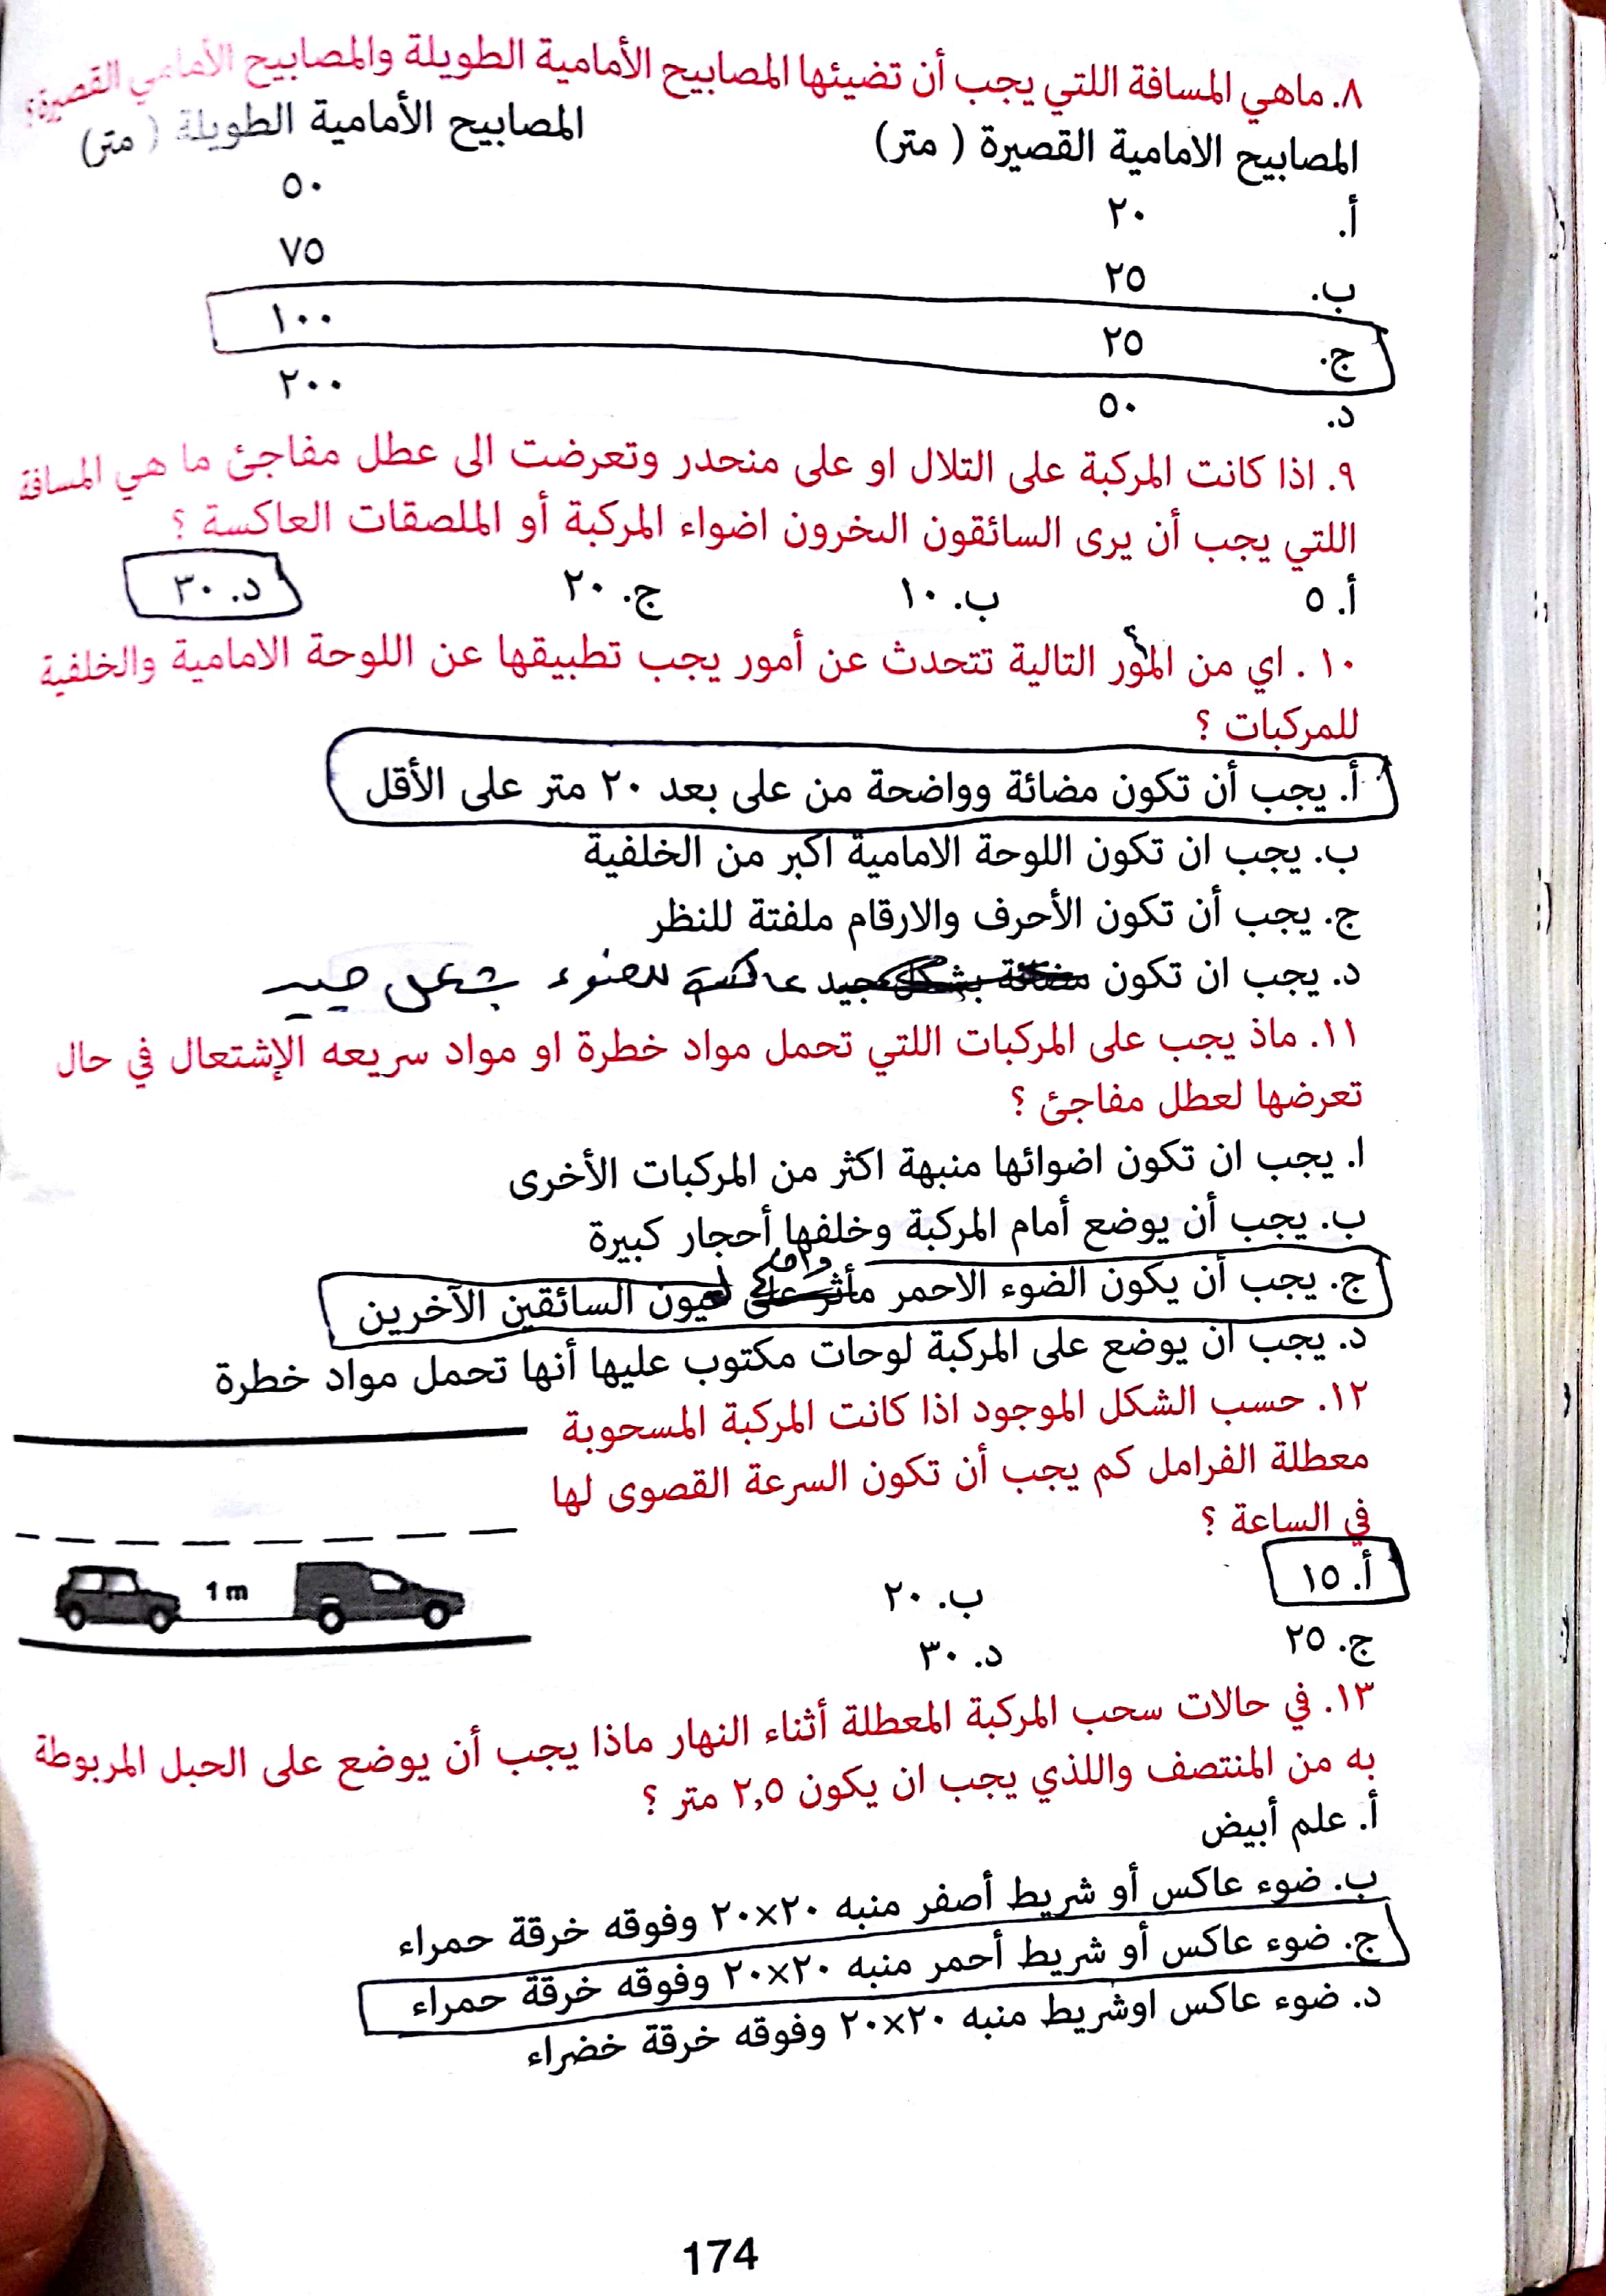 ٨. ماهي المسافة اللتي يجب أن تضيئها المصابيح الأمامية الطويلة والمصابيح الأمامي القصيرة؟
المصابيح الامامية القصيرة ( متر) المصابيح الأمامية الطويلة ( متر)
أ. ٢٠ ٥٠
ب. ٢٥ ٧٥
ج. ٢٥ ١٠٠
د. ٥٠ ٢٠٠
٩. اذا كانت المركبة على التلال او على منحدر وتعرضت الى عطل مفاجئ ما هي المسافة
اللتي يجب أن يرى السائقون اضواء المركبة أو الملصقات العاكسة ؟
أ. ٥ ب. ١٠ ج. ٢٠ د. ٣٠
١٠ . اي من التالية تتحدث عن أمور يجب تطبيقها عن اللوحة الامامية والخلفية
للمركبات ؟
أ. يجب أن تكون مضائة وواضحة من على بعد ٢٠ متر على الأقل
ب. يجب ان تكون اللوحة الامامية اكبر من الخلفية
ج. يجب أن تكون الأحرف والارقام ملفتة للنظر
د. يجب ان تكون مضائة بشكل جيد عاكسة للضوء بشكل جيد
١١. ماذ يجب على المركبات اللتي تحمل مواد خطرة او مواد سريعه الإشتعال في حال
تعرضها لعطل مفاجئ ؟
ا. يجب ان تكون اضوائها منبهة اكثر من المركبات الأخرى
ب. يجب أن يوضع أمام المركبة وخلفها أحجار كبيرة
ج. يجب أن يكون الضوء الاحمر مأثر على عيون السائقين الآخرين
د. يجب ان يوضع على المركبة لوحات مكتوب عليها أنها تحمل مواد خطرة
١٢. حسب الشكل الموجود اذا كانت المركبة المسحوبة
معطلة الفرامل كم يجب أن تكون السرعة القصوى لها
في الساعة ؟
1 m
أ. ١٥ ب. ٢٠
ج. ٢٥ د. ٣٠
١٣. في حالات سحب المركبة المعطلة أثناء النهار ماذا يجب أن يوضع على الحبل المربوطة
به من المنتصف واللذي يجب ان يكون ٢,٥ متر ؟
أ. علم أبيض
ب. ضوء عاكس أو شريط أصفر منبه ٢٠×٢٠ وفوقه خرقة حمراء
ج. ضوء عاكس أو شريط أحمر منبه ٢٠×٢٠ وفوقه خرقة حمراء
د. ضوء عاكس اوشريط منبه ٢٠×٢٠ وفوقه خرقة خضراء
174